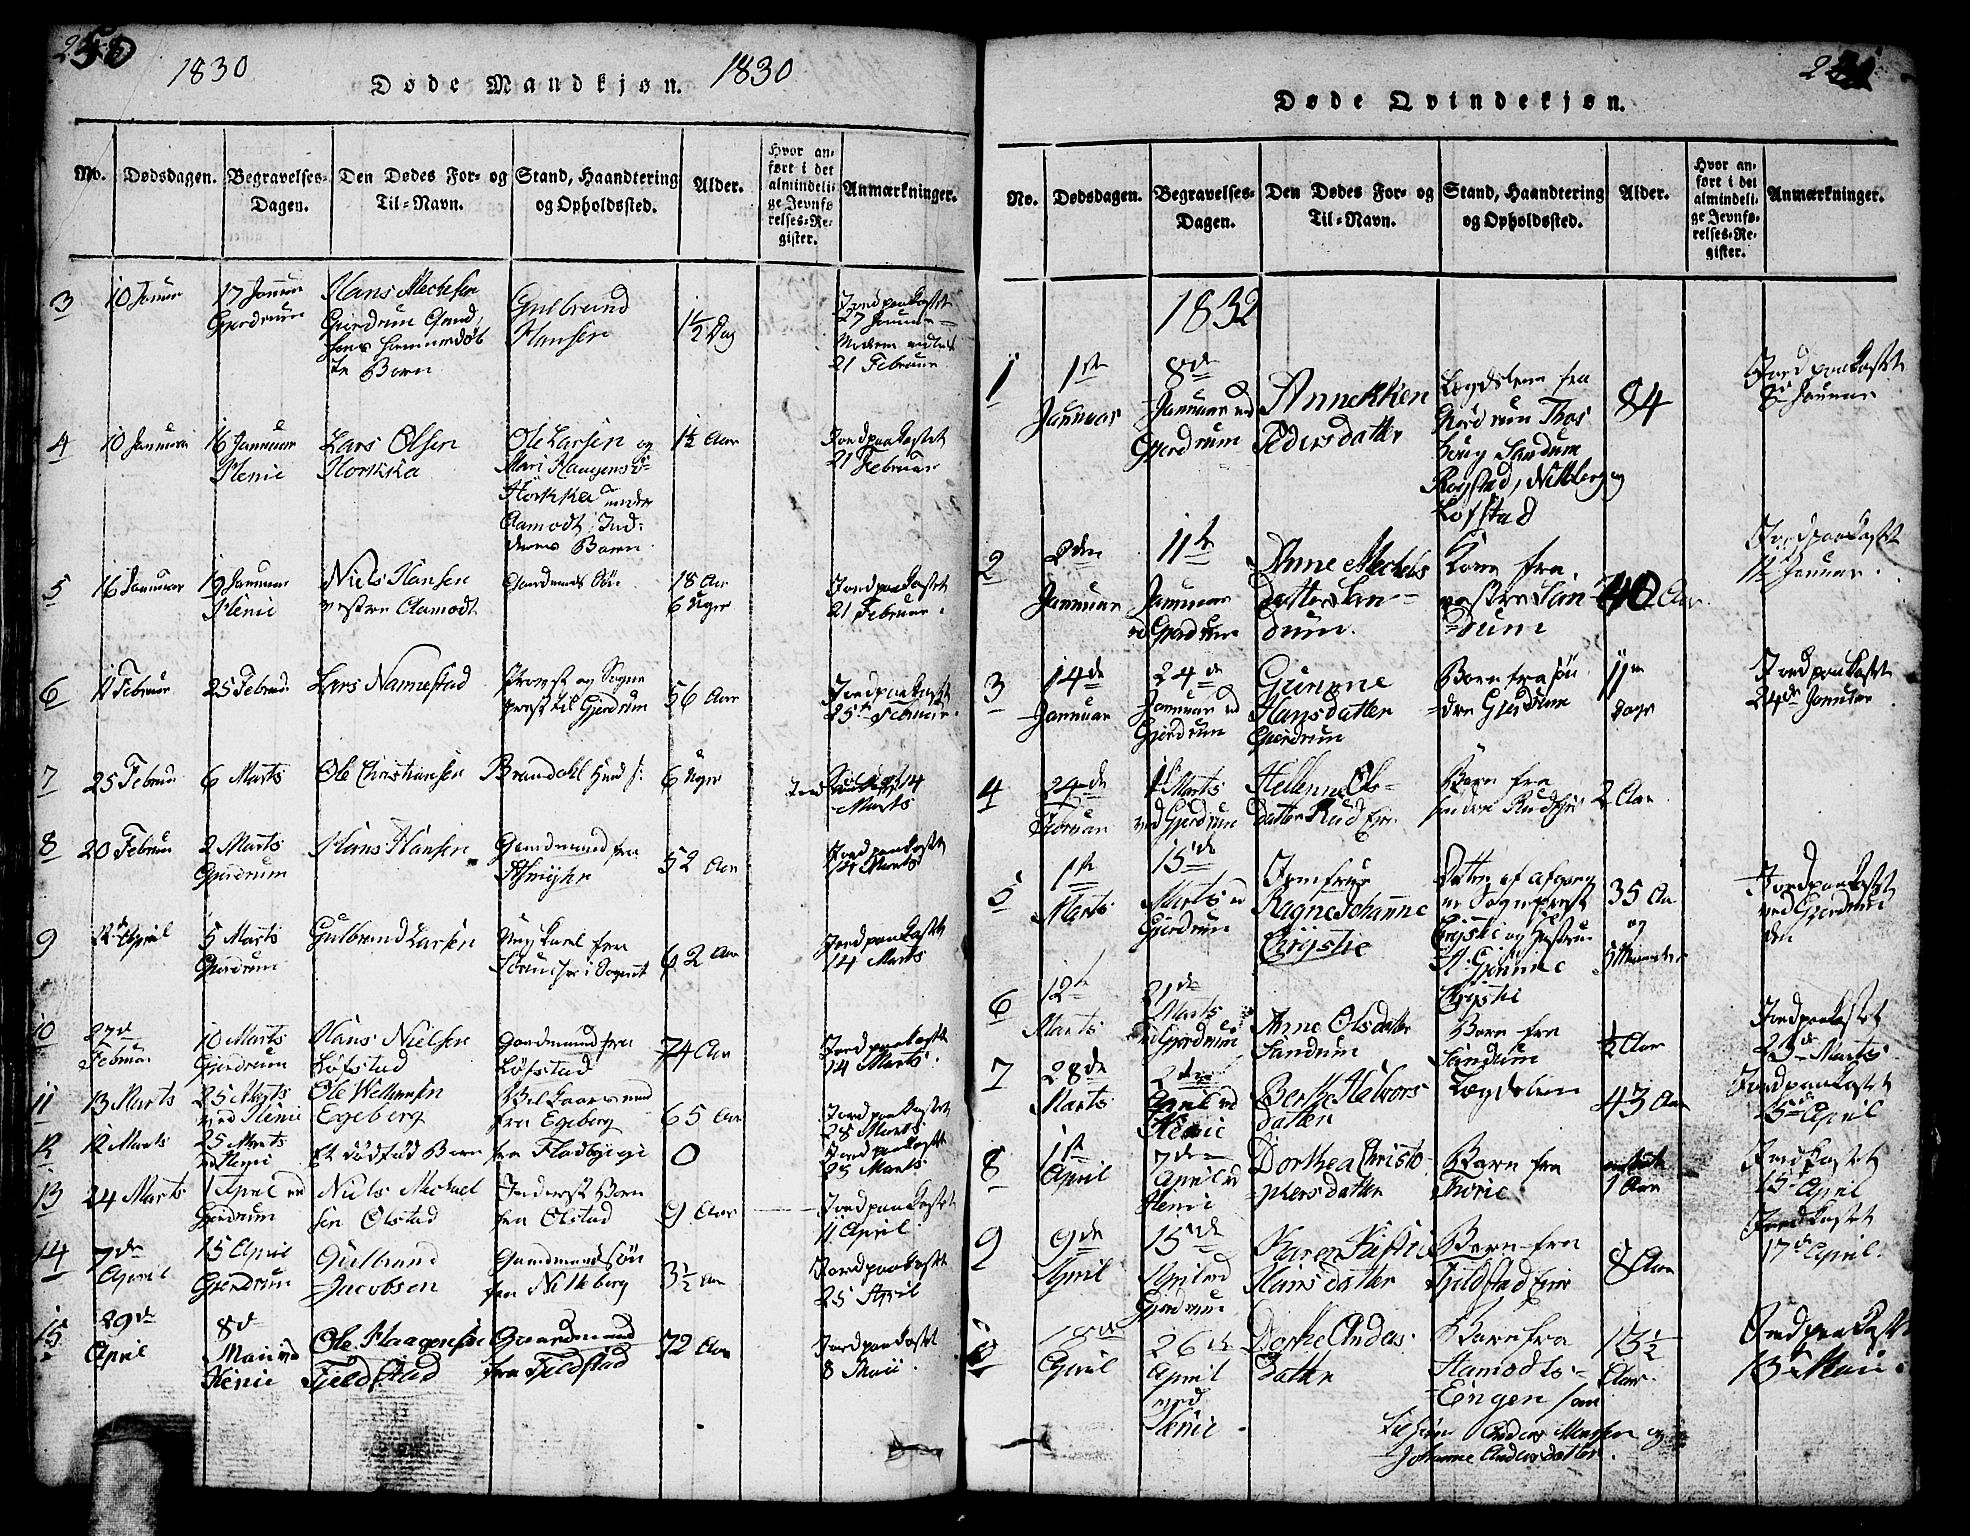 250
1830
Døde Mandkjøn.
1830
No.
Dødsdagen.
Begravelses-
Dagen.
Den Dødes For- og
Til-Navn.
Stand, Haandtering
og Opholdssted.
Alder.
Hvor an-
ført i det
almindeli-
ge Jevnfø-
relses-Re-
gister.
Anmærkninger.
3
10 Januar
17 Januar
Gjerdrum
Hans
Gjerdrum
Børn
Gulbrand
Hansen
1½ Dag
Jordpaakastet
27 Januar
21 Februar
4
10 Januar
16 Januar
Henie
Lars Olsen
Horkka
Ole Larsen og
Mari Haagens D
Horkka under
Aamodt, Ind-
dernes Barn
1½ Aar
Jordpaakastet
21 Februar
5
16 Januar
19 Januar
Henie
Niels Hansen
vestre Aamodt
Gaardmands Søn
18 Aar
6 Uger
Jordpaakastet
21 Februar.
6
11 Februar
25 Februar
Lars Nannestad
Provst og Sogne
præst til Gjerdrum
56 Aar
Jordpaakastet
25 Februar.
7
25 Februar
6 Marts
Ole Christiansen
Brandahl
6 Uger
Jord
14
Marts
8
20 Februar
2 Marts
Gjerdrum
Hans Hansen
Gaardmand fra
52 Aar
Jordpaakastet
14 Marts
9
April
5 Marts
Gjerdrum
Gulbrand Larsen
Ungkarl fra
62 Aar
Jordpaakastet
14 Marts
10
27de
Februar
10 Marts
Gjerdrum
Hans Nielsen
Løfstad
Gaardmand fra
Løfstad
74 Aar
Jordpaakastet
14 Marts.
11
13 Marts
25 Marts
ved Henie
Ole
Egeberg
fra Egeberg
65 Aar
Jordpaakastet
28 Marts
12
12 Marts
25 Marts
ved Henie
Et dødfød Barn
fra Fladbyeie
0
Jordpaakastet
28 Marts
13
24 Marts
1 April ved
Gjerdrum
Niels Michael
sen Ølstad
Inderst Barn
fra Ølstad
9 Aar
Jordpaakastet
11 April
14
7de
April
15 April
Gjerdrum
Gulbrand
Jacobsen
Gaardmandssøn
fra Nilkeberg
3½ Aar
Jordpaakastet
25 April
15
29de
April
8de
Mai ved
Henie
Ole Haagensen
Fjeldstad
Gaardmand
fra Fjeldstad
72 Aar
Jordpaakastet
8 Maii
Døde Qvindekjøn.
No.
Dødsdagen.
Begravelses-
Dagen.
Den Dødes For- og
Til-Navn.
Stand, Haandtering
og Opholdssted.
Alder.
Hvor an-
ført i det
almindeli-
ge Jevnfø-
relses-Re-
gister.
Anmærkninger.
1832
1
1ste
Januar
8de
Januar ved
Gjerdrum
Annekken
Pedersdatter
Lægdslem fra
Sandum
Rogstad, Nilkeberg og
Løfstad
84
Jordpaakastet
8 Januar
2
2den
Januar
11te
Januar
ved Gjerdrum
Anne Mechels
datter San-
dum.
Kone fra
vestre San-
dum
40 Aar.
Jordpaakastet
11 Januar.
3
14de
Januar
24de
Januar ved
Gjerdrum
Gunnne
Hansdatter
Gjerdrum
Barn fra søn
dre Gjerdrum
11
Dage
Jordpaakastet
24de Januar
4
24de
Februar
Marts
ved Gjerdrum
Hellenne Ols-
datter Rud
Barn fra
2 Aar
5
1ste
Marts
15de
Marts ved
Gjerdrum
Jomfrue
Ragne Johanne
Christie
Datter af afgang
ne Sognepræst
Christie og Hustrue
Christie
35 Aar
og
5 Maaneder
Jordpaakastet
ved Gjerdrum
den
6
12te
Marts
21de
Marts
ved Gjerdrum
Anne Olsdatter
Sandum
Barn fra
Sandum
½ Aar
Jordpaakastet
23de Marts
7
28de
Marts
2den
April ved
Henie
Berthe Halvors
datter
Lægdslem
43 Aar
Jordpaakastet
April
8
1ste
April
7de
April ved
Henie
Dorthea Christo-
phersdatter
Barn fra
1 Aar
Jordkastet
15 April
9
9de
April
15de
April ved
Gjerdrum
Karen Kirstie
Hansdatter
Barn fra
Fjeldstad Eie
8 Aar
Jordkastet
17de April.
18de
April
26de
April
ved
Henie
Dorthe Anders
datter
Barn fra
Aamodts-
Eingen
Anders Madsen og
Johanne Andersdatter.
13½
Aar
Jordpaakastet
13 Mai